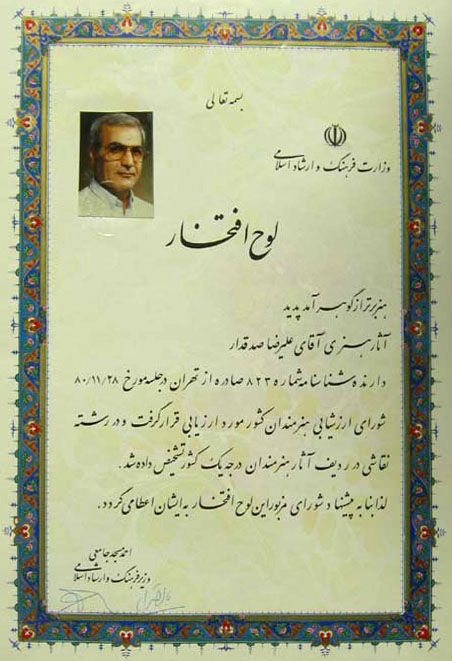 بسمه تعالی
وزارت فرهنگ و ارشاد اسلامی
لوح افتخار
هنر برتر از گوهر آمد پدید
آثار هنری آقای علیرضا صدقدار
دارنده شناسنامه شماره ۸۲۳ صادره از تهران در جلسه مورخ ۸۰/۱۱/۲۸
شورای ارزشیابی هنرمندان کشور مورد ارزیابی قرار گرفت و در رشته
نقاشی در ردیف آثار هنرمندان درجه یک کشور تشخیص داده شد.
لذا بنا به پیشنهاد شورای مزبور این لوح افتخار به ایشان اعطا می گردد.
احمد مسجد جامعی
وزیر فرهنگ و ارشاد اسلامی